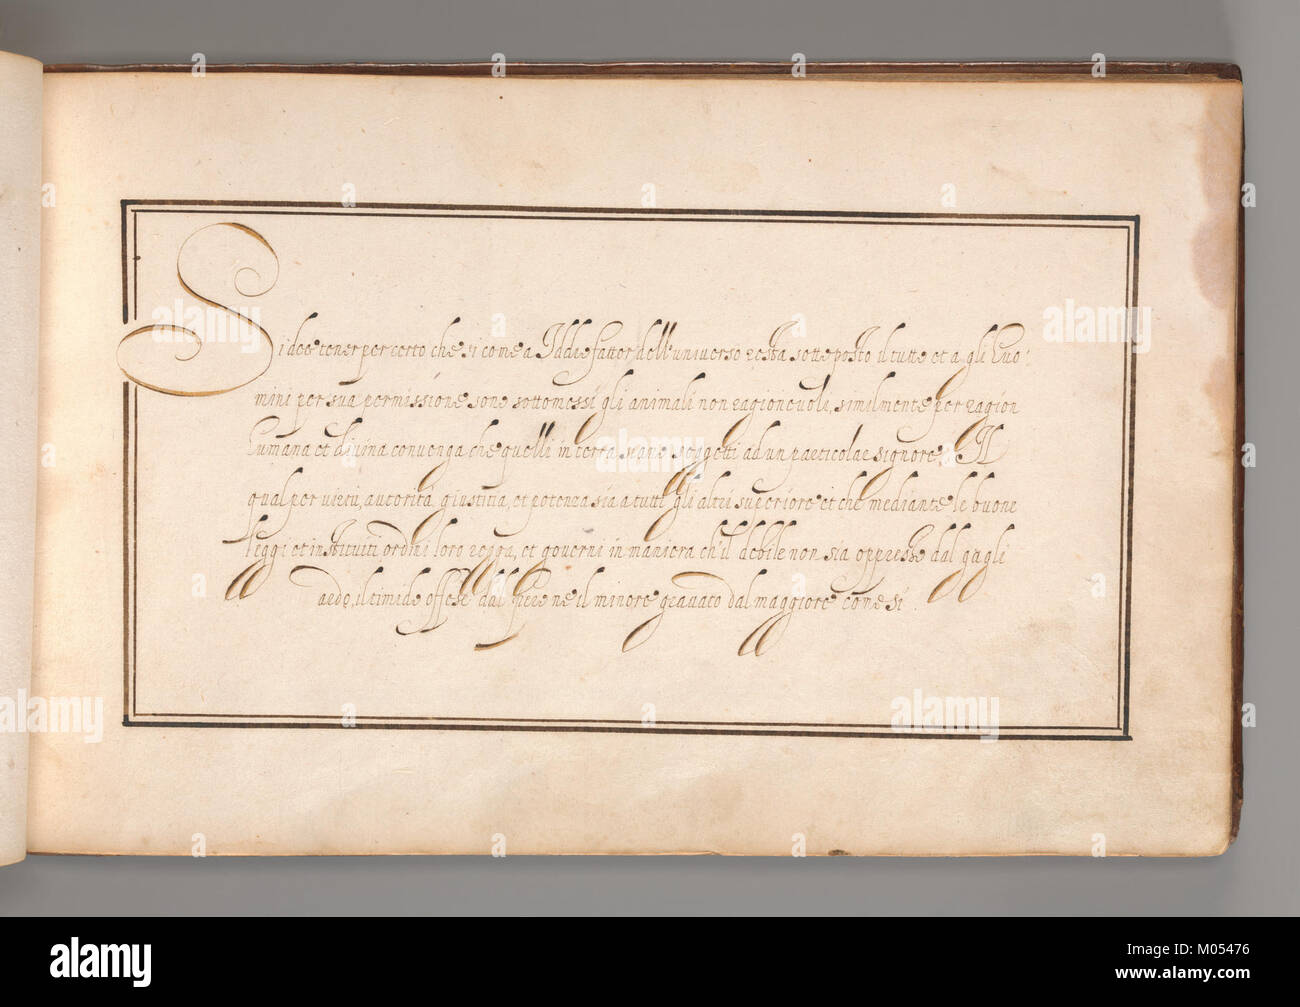 Si dee tener per certo che si come a Iddio fattor dell'universo resta sottoposto il tutto et a gli huo:
mini per sua permissione sono sottomessi gli animali non ragionevoli, similmente per ragion
humana et divina convenga che quelli in terra siano soggetti ad un particolar signore. Il
qual per virtù, autorità, giustitia, et potenza sia a tutti gli altri superiore et che mediante le buone
leggi et instituiti ordini loro regga, et governi in maniera ch'il debile non sia oppresso dal gagli
ardo, il timido offeso dal fiero ne il minore gravato dal maggiore come si
alamy
M05476
www.alamy.com